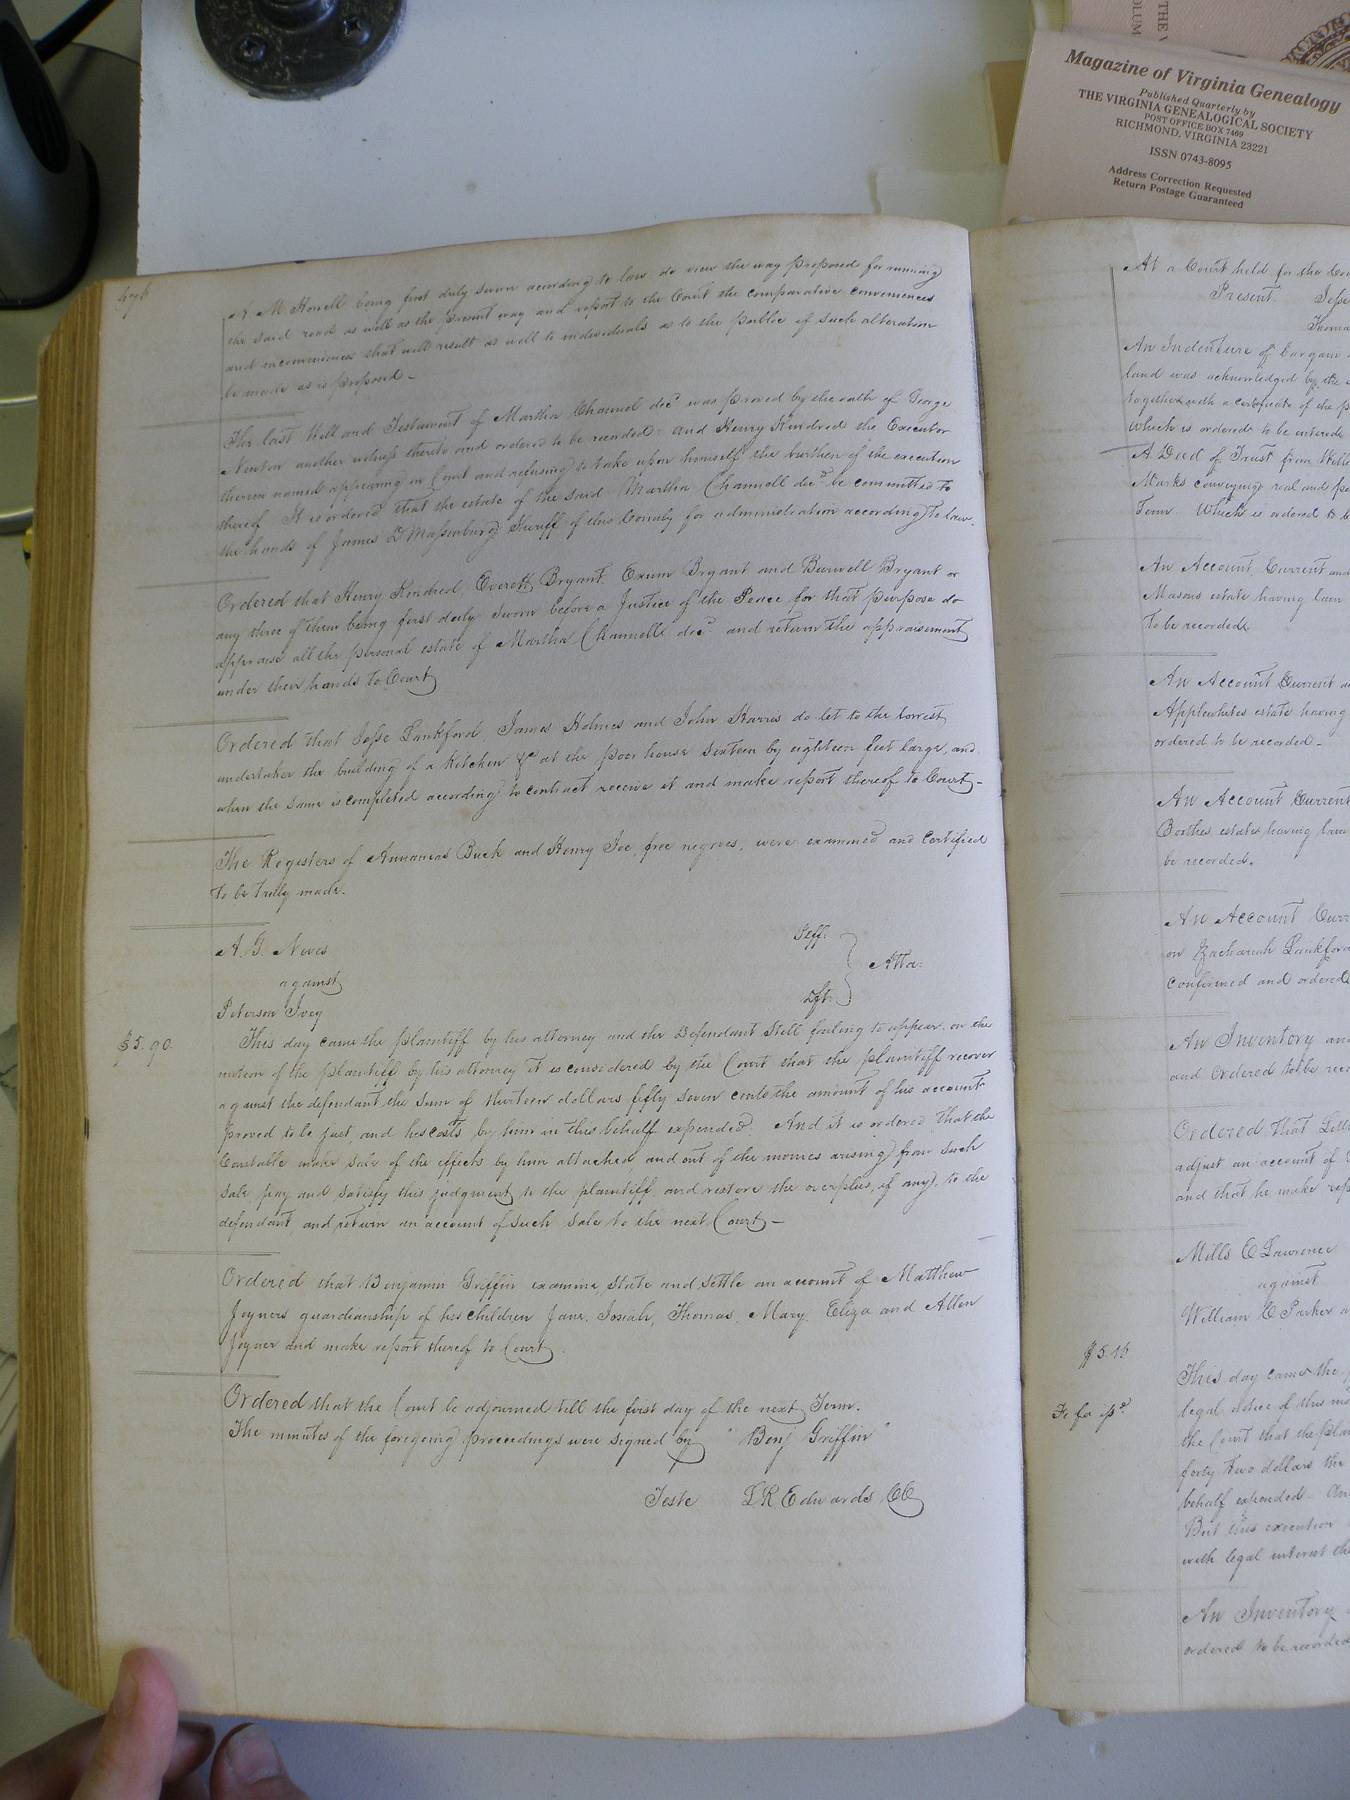 Magazine of Virginia Genealogy
Published Quarterly by
THE VIRGINIA GENEALOGICAL SOCIETY
POST OFFICE BOX 7469
RICHMOND, VIRGINIA 23221
ISSN 0743-8095
Address Correction Requested
Return Postage Guaranteed
THE V
OLUM
A. M Howell being first duly sworn according to law do view the way proposed for running
the said road as well as the present way and report to the Court the comparative conveniences
and inconveniences that will result as well to individuals as to the public if such alteration
be made as is proposed -
The last Will and Testament of Martha Channel decd was proved by the oath of George
Newton another witness thereto and ordered to be recorded and Henry Kindred the Executor
therein named appearing in Court and refusing to take upon himself the burthen of the execution
thereof It is ordered that the estate of the said Martha Channell decd be committed to
the hands of James D Massenburg Sheriff of this County for administration according to law.
Ordered that Henry Kindred, Everett Bryant, Exum Bryant and Burwell Bryant or
any three of them being first duly sworn before a Justice of the Peace for that purpose do
appraise all the personal estate of Martha Channells decd and return the appraisement
under their hands to Court
Ordered that Jesse Lankford, James Holmes and John Harris do let to the lowest
undertaker the building of a Kitchen &c at the poor house sixteen by eighteen feet large, and
when the same is completed according to contract receive it and make report thereof to Court -
The Registers of Annanias Buck and Henry Joe, free negroes, were examined and certified
to be truly made.
A. G. Neves Plff.
against Atta:
Peterson Ivey Dft.
$5.90. This day came the plaintiff by his attorney and the Defendant still failing to appear, on the
motion of the plaintiff by his attorney it is considered by the Court that the plaintiff recover
against the defendant the sum of thirteen dollars fifty seven cents the amount of his account
proved to be just, and his costs by him in this behalf expended. And it is ordered that the
Constable make sale of the effects by him attached and out of the monies arising from such
sale pay and satisfy this judgment to the plaintiff, and restore the overplus, if any, to the
defendant, and return an account of such sale to the next Court -
Ordered that Benjamin Griffin examine, state and settle an account of Matthew
Joyners guardianship of his children Jane, Josiah, Thomas, Mary, Eliza and Allen
Joyner and make report thereof to Court
Ordered that the Court be adjourned till the first day of the next Term.
The minutes of the foregoing proceedings were signed by "Benj Griffin"
Teste L R Edwards CC
At a Court held for the Cou
Present. Jesse
Thomas
An Indenture of bargain
land was acknowledged by the
together with a certificate of the p
which is ordered to be
A Deed of Trust from Will
Marks conveying real and pe
Term. Which is ordered to b
An Account Current and
Masons estate having been
to be recorded
An Account Current a
Applewhites estate having
ordered to be recorded -
An Account Current
Boothes estate having been
be recorded.
An Account Curr
on Zachariah Lankford
confirmed and ordered
An Inventory and
and Ordered to be rec
Ordered that
adjust an account of
and that he make rep
Mills E Lawrence
against
William C Parker a
$5.15
This day came the p
legal notice of this mo
Fi fa issd
the Court that the plai
forty two dollars the
behalf expended. An
But this execution
with legal interest th
An Inventory
ordered to be recorded